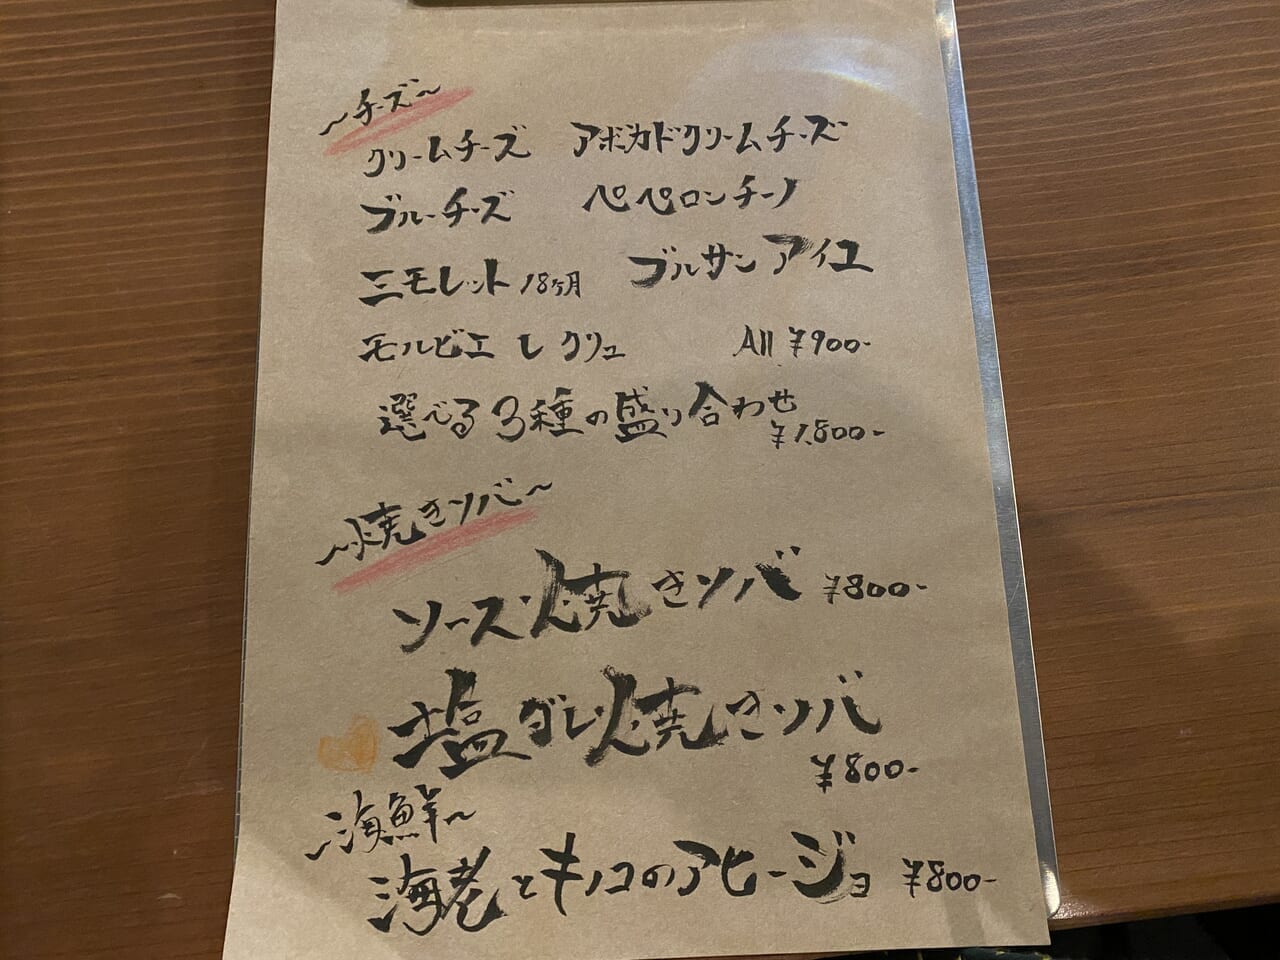 〜チーズ〜
クリームチーズ アボカドクリームチーズ
ブルーチーズ ペペロンチーノ
ミモレット 18ヶ月 ブルサンアイユ
モルビエ レ クリュ All ¥900-
選べる3種の盛り合わせ
¥1,800-
〜焼きソバ〜
ソース焼きソバ ¥800-
塩ダレ焼きソバ
¥800-
〜海鮮〜
海老とキノコのアヒージョ ¥800-